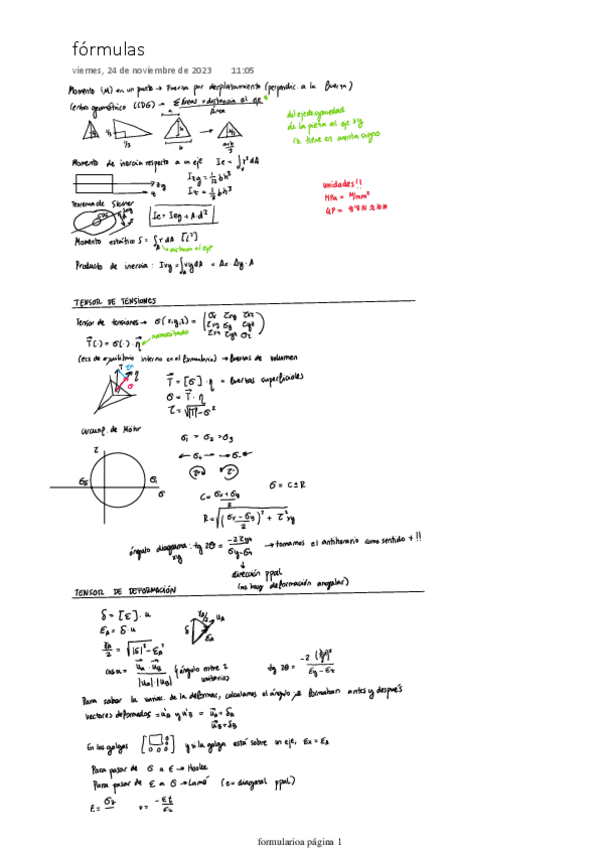 fórmulas
viernes, 24 de noviembre de 2023 11:05
Momento (M) en un punto → Fuerza por desplazamiento (perpendic. a la fuerza)
Centro geométrico (CDG) → Σ Áreas × distancia al eje
Área
h/3
1/3
a+b/3
del eje de gravedad
de la pieza al eje x/y
Momento de inercia respecto a un eje Ie = ∫ r² dA
Ixg = 1/12 bh³
unidades!!
MPa = N/mm²
Teorema de Steiner
Ie = Ieg + A·d²
Momento estático S = ∫ r dA [L³]
→ distancia al eje
Producto de inercia: Ixy = ∫ xy dA = Δx · Δy · A
TENSOR DE TENSIONES
Tensor de tensiones → σ(x,y,z) = (σx τxy τxz
τxy σy τyz
τxz τyz σz)
T(·) = σ(·) · η
(ecs de equilibrio interno en el formulario) → fuerzas de volumen
T = [σ] · η = fuerzas superficiales
σ = T · η
τ = √|T|² - σ²
circunf. de Mohr
τ
σ
σ1 > σ2 > σ3
C = σx + σy / 2
σ = C ± R
R = √(σx - σy / 2)² + τ²xy
ángulo diagrama: tg 2θ = -2τxy / σy - σx → tomamos el antihorario como sentido + !!
xy
dirección ppal
(no hay deformación angular)
TENSOR DE DEFORMACIÓN
δ = [ε] · u
εA = δ · u
γA/2 = √|δ|² - εA²
cos α = uA · uB / |uA| · |uB| (ángulo entre 2
unitarios)
Para saber la variac. de la deformac, calculamos el ángulo formaban antes y después
vectores deformados = u'A y u'B = uA + δA
uB + δB
En las galgas y si la galga está sobre un eje, εx = εA
Para pasar de σ a ε → Hooke
Para pasar de ε a σ → Lamé (e = diagonal ppal)
formularioa página 1